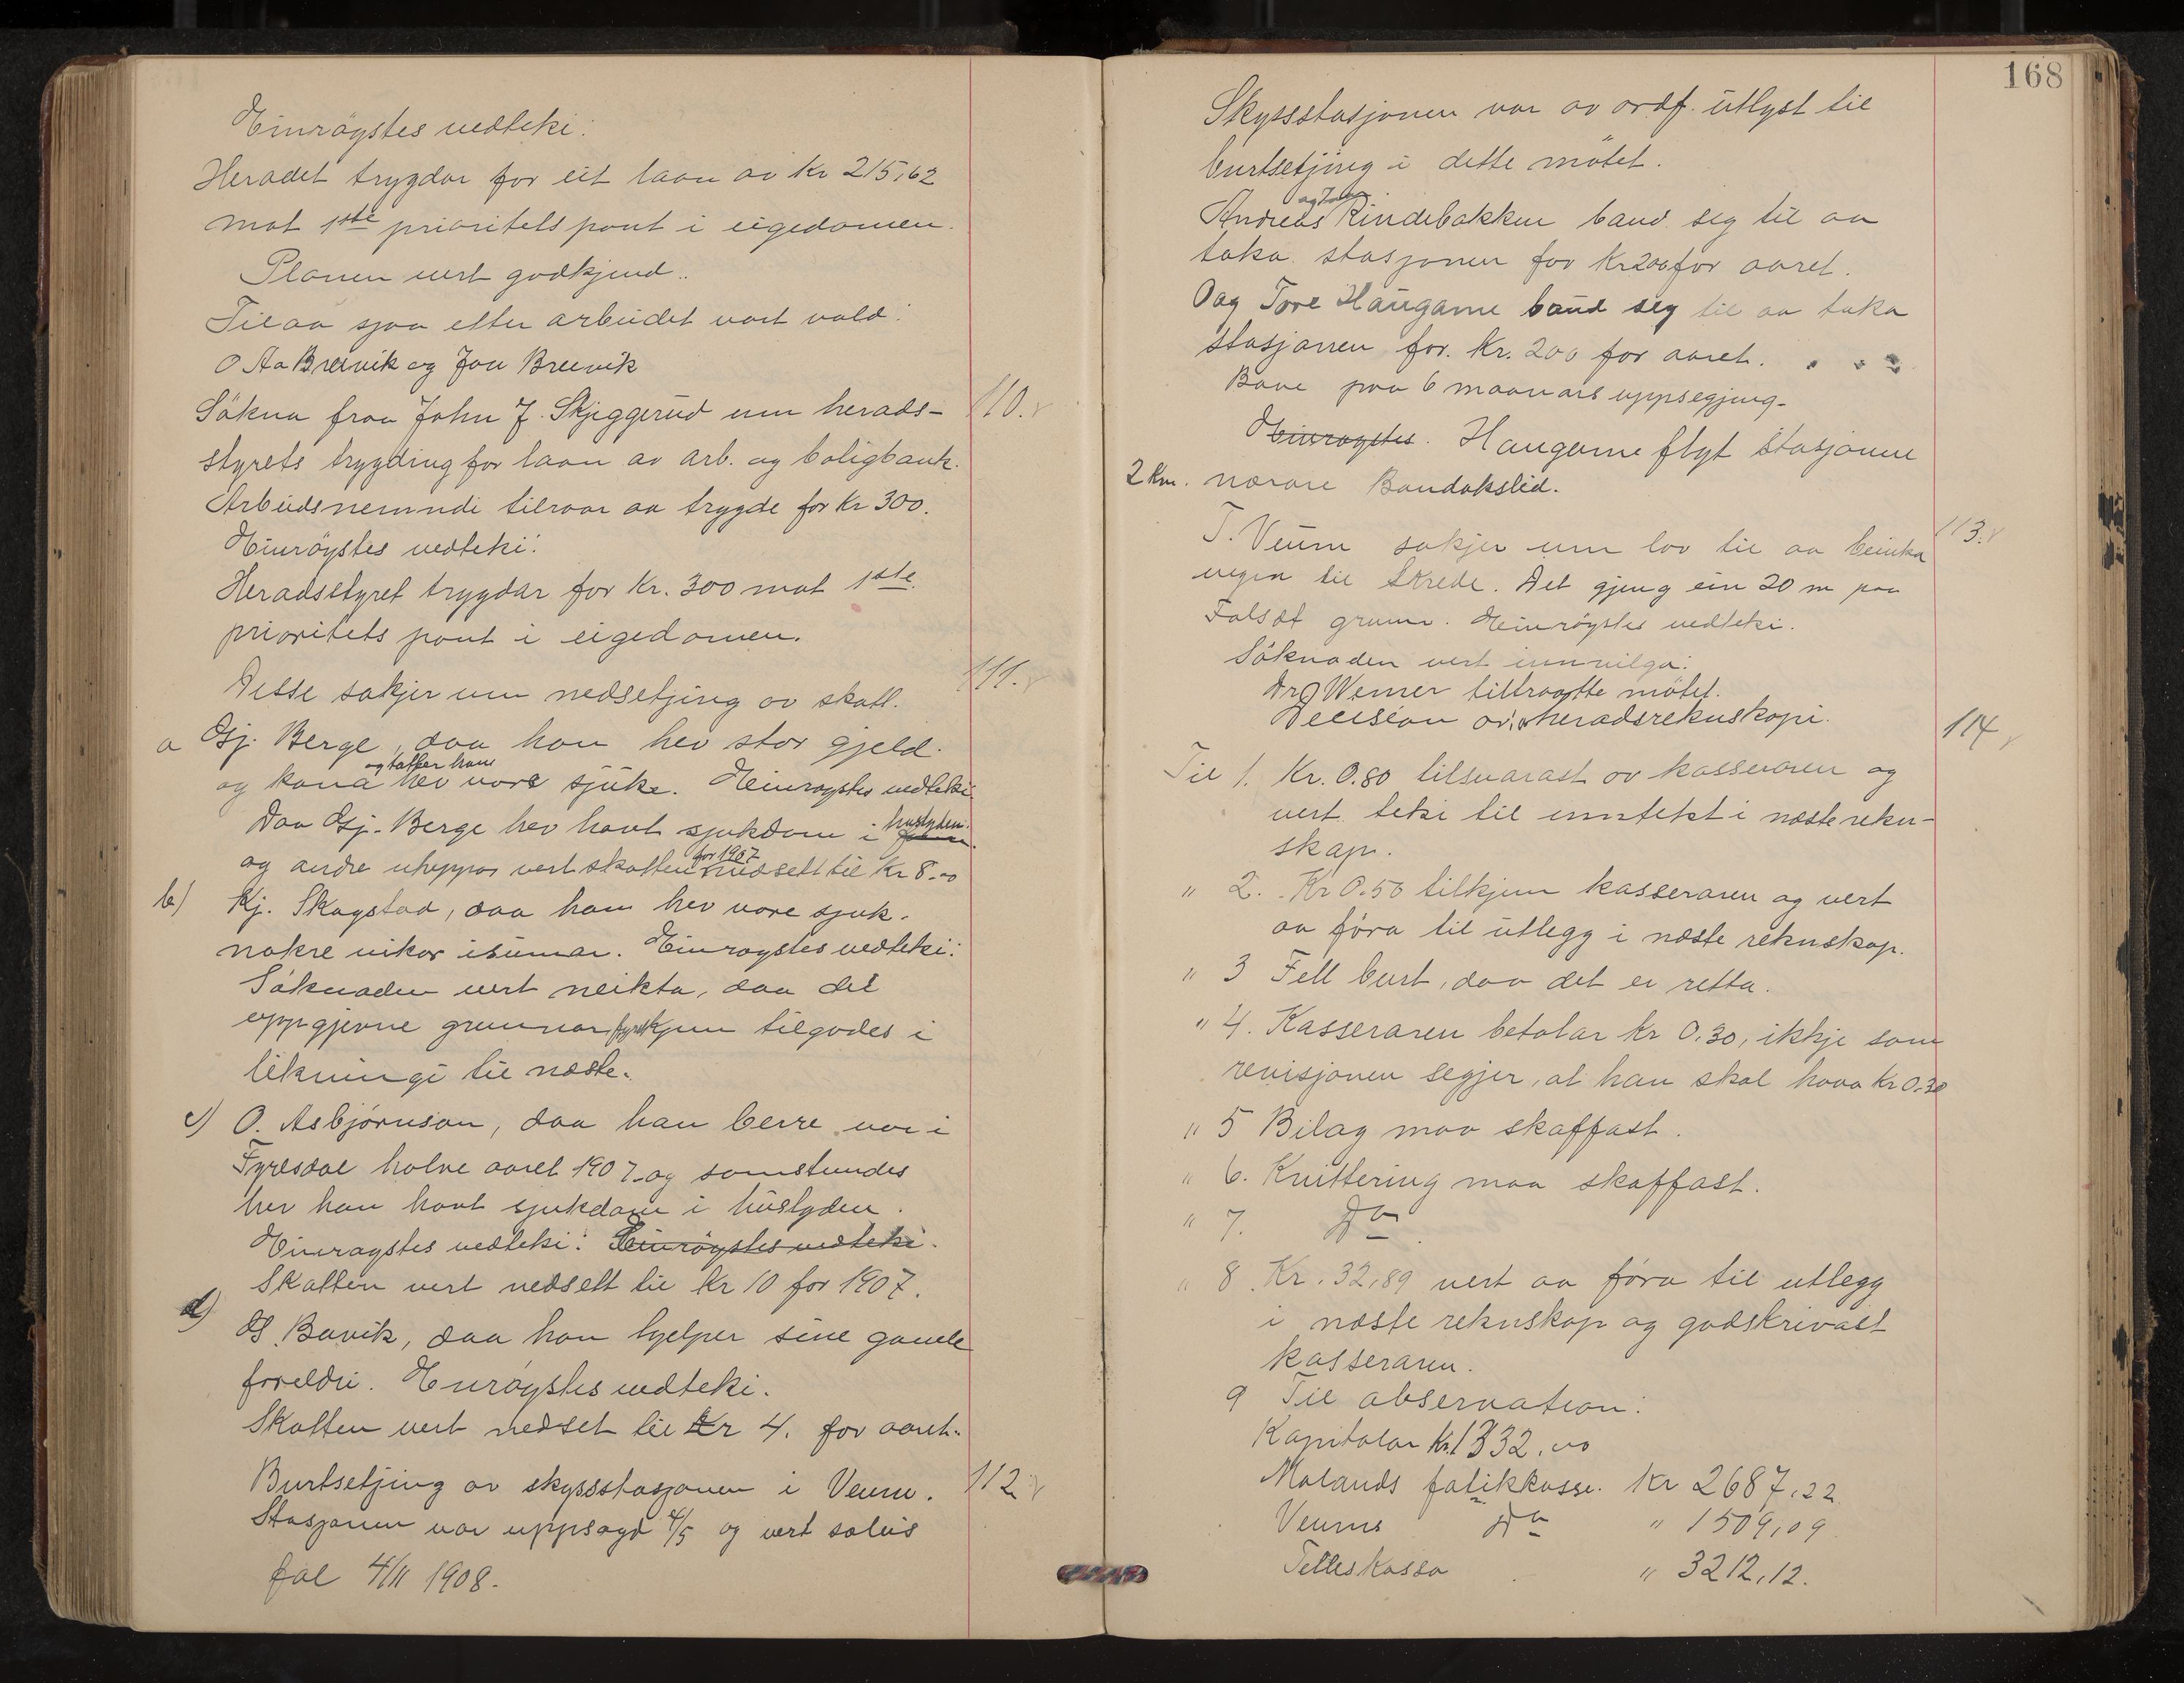 Einröystes vedteki:
Heradet trygdar for eit laan av Kr 215,62
mot 1ste prioritets pant i eigedomen.
Planen vert godkjend..
Til aa sjaa etter arbeidet vart vald:
O Aa Breivik og Jon Breivik
Sökna fraa John J. Skjeggerud um herads- 110.
styrets trygding for laan av arb. og boligbank.
Arbeidsnemndi tilraar aa trygde for Kr 300.
Einröystes vedteki:
Heradsstyret trygdar for Kr. 300 mot 1ste
prioritets pant i eigedomen.
Desse søkjer um nedsetjing av skatt. 111.
a Gj. Berge, daa han hev stor gjeld.
og kona og han hev vore sjuke. Einröystes vedteki
Daa Gj. Berge hev havt sjukdom i huslyden.
og andre uheppor vert skatten for 1907 nedsett til Kr 8.00
b) Kj. Skogstad, daa han hev vore sjuk.
nokre vikor i sumar. Einröystes vedteki:
Söknaden vert neikta, daa dei
uppgjevne grunnar fyrst kjem tilgodes i
likningi til næste.
c) O. Asbjörnson, daa han berre var i
Fyresdal halve aaret 1907 og somstundes
hev han havt sjukdom i huslyden.
Einröystes vedteki: Einröystes vedteki.
Skatten vert nedsett til Kr 10 for 1907.
d) G. Bavik, daa han hjelper sine gamle
foreldri. Einröystes vedteki.
Skatten vert nedset til Kr 4. for aaret.
Burtsetjing av skysstasjonen i Veum. 112
Stasjonen var uppsagd 4/5 og vert soleis
fal 4/11 1908.
168
Skysstasjonen var av ordf. utlyst til
burtsetjing i dette mötet.
Andreas Rindebakken baud seg til aa
taka stasjonen for Kr 200 for aaret.
Oag Tore Haugarne baud seg til aa taka
stasjonen for. Kr. 200 for aaret.
Bae paa 6 maanars uppsegjing.
Einröystes. Haugarne flyt stasjonen
2 Km. nærare Bandakslid.
T. Veum søkjer um lov til aa beinka 113.
vegen til Skrede. Det gjeng ein 20 m paa
Falsdt grunn. Einröystes vedteki.
Söknaden vert innvilga:
Dr Werner tiltraadte mötet.
Decision av heradsrekneskapi. 114
Til 1. Kr. 0.80 tilsvarast av kasseraren og
vert teki til inntekt i næste rekn-
skap.
" 2. Kr 0.50 tilkjem kasseraren og vert
aa föra til utlegg i næste reknskap.
" 3 Fell burt, daa det er retta.
" 4. Kasseraren betalar kr 0.30, ikkje som
revisjonen segjer, at han skal hava Kr 0.30
" 5 Bilag maa skaffast.
" 6. Kvittering maa skaffast.
" 7. Do
" 8 Kr. 32,89 vert aa föra til utlegg
i næste reknskap og godskrivast
kasseraren.
9 Til observation:
Kapitalar Kr. 1332.00
Molands fatikkasse. Kr 2687.22
Veums Do " 1509,09
Felleskassa " 3212,12.